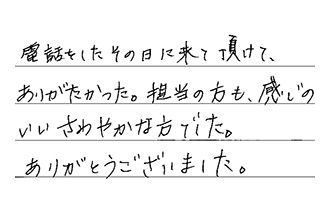 電話をしたその日に来て頂けて、
ありがたかった。担当の方も、感じの
いいさわやかな方でした。
ありがとうございました。